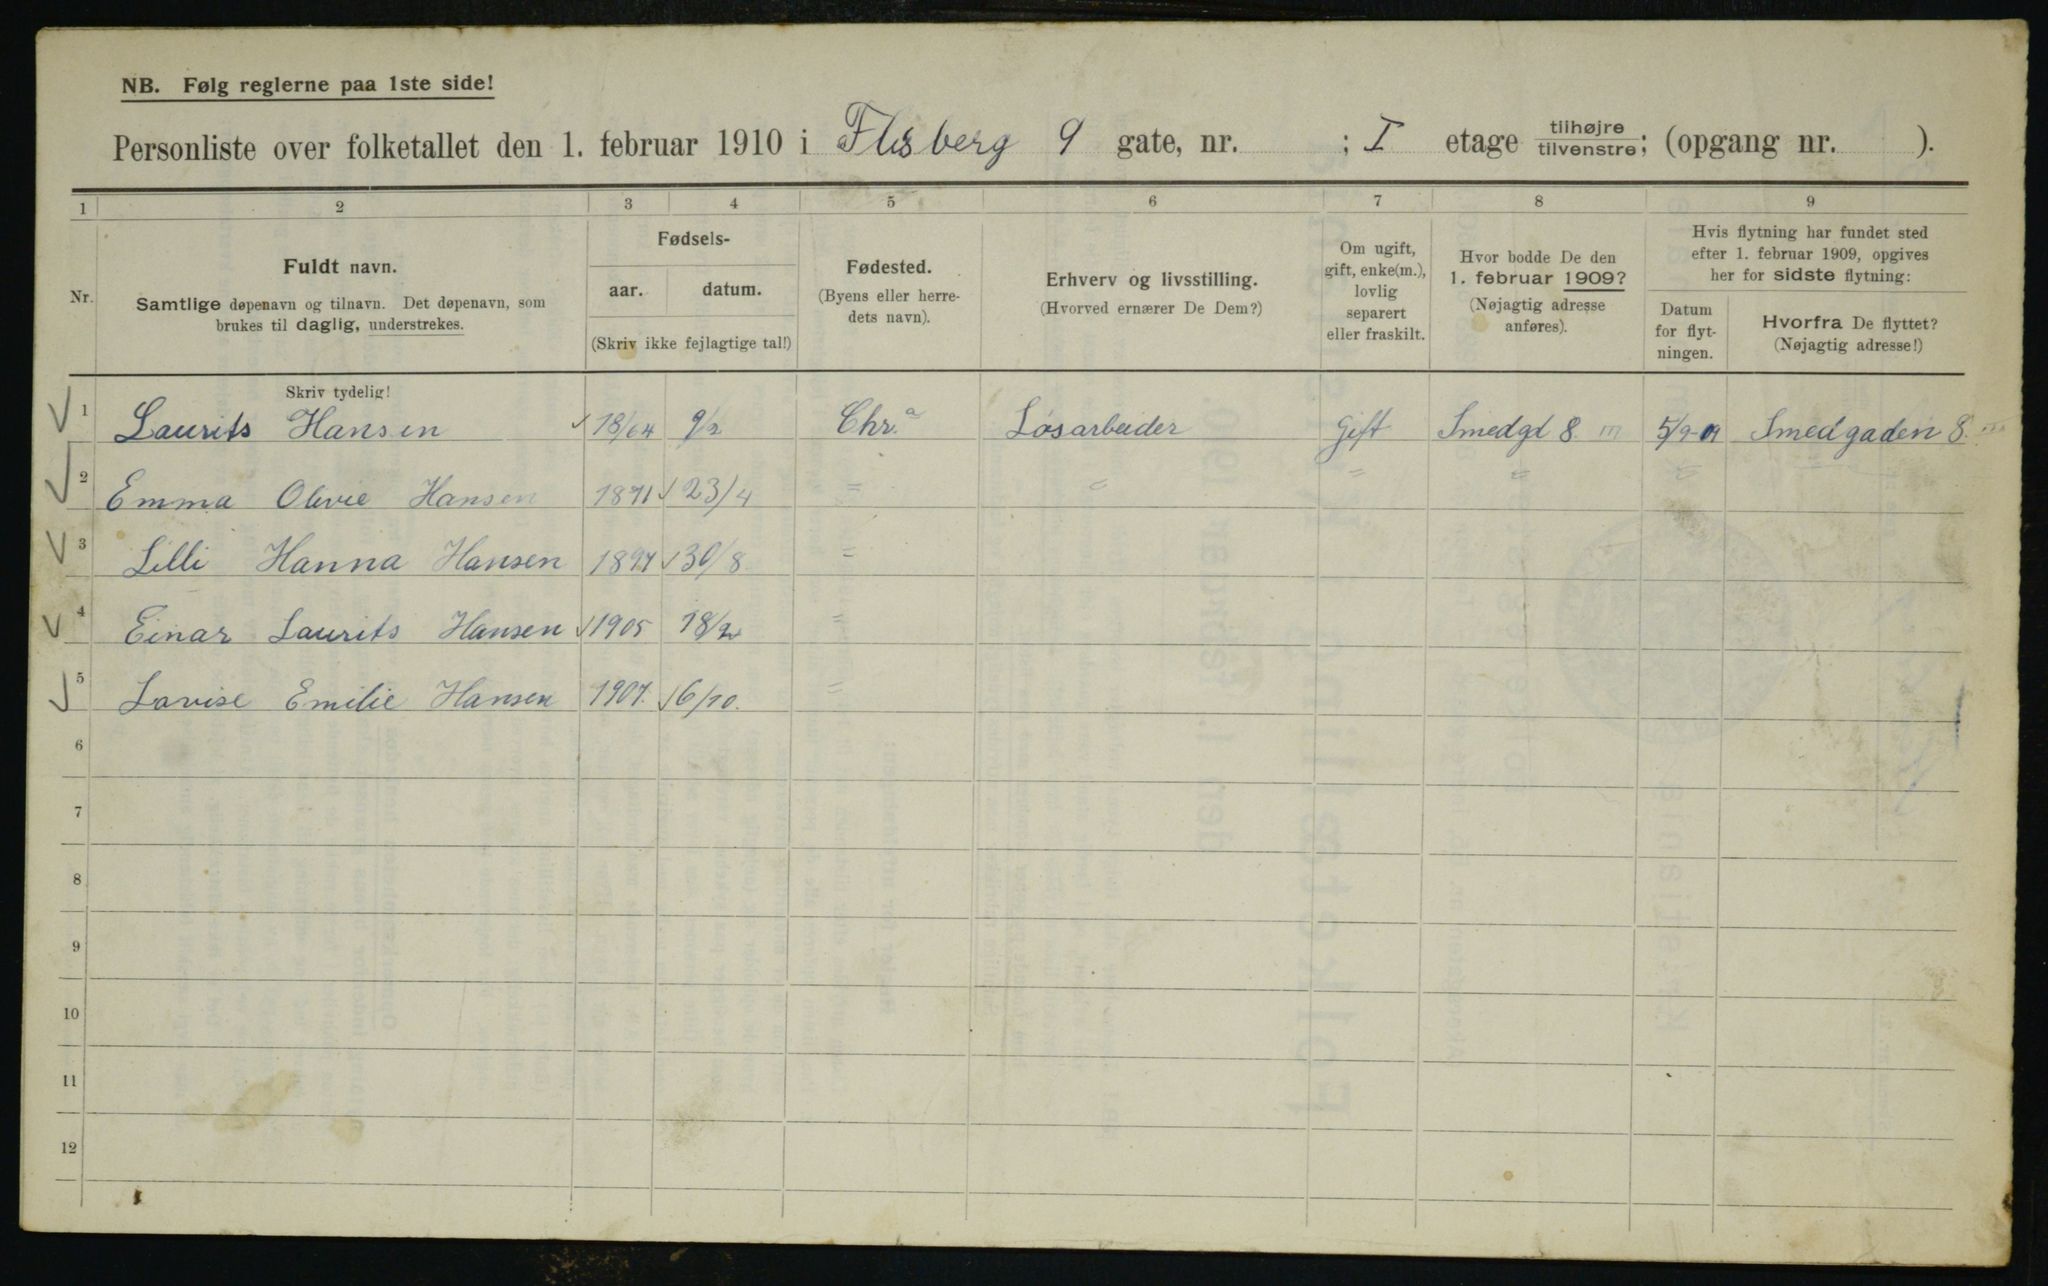 NB. Følg reglerne paa 1ste side!
Personliste over folketallet den 1. februar 1910 i Flesberg 9 gate, nr. ; I etage tilhøjre tilvenstre; (opgang nr. ).
1 2 3 4 5 6 7 8 9
Nr.
Fuldt navn.
Samtlige døpenavn og tilnavn. Det døpenavn, som
brukes til daglig, understrekes.
Fødsels-
aar. datum.
(Skriv ikke fejlagtige tal!)
Fødested.
(Byens eller herre-
dets navn).
Erhverv og livsstilling.
(Hvorved ernærer De Dem?)
Om ugift,
gift, enke(m.),
lovlig
separert
eller fraskilt.
Hvor bodde De den
1. februar 1909?
(Nøjagtig adresse
anføres).
Hvis flytning har fundet sted
efter 1. februar 1909, opgives
her for sidste flytning:
Datum
for flyt-
ningen.
Hvorfra De flyttet?
(Nøjagtig adresse!)
Skriv tydelig!
1 Laurits Hansen 18/64 9/2 Chr.a Løsarbeider Gift Smedgd 8. 5/9-09 Smedgaden 8.
2 Emma Olivie Hansen 1871 23/4 " " " " "
3 Lilli Hanna Hansen 1897 30/8. "
4 Einar Laurits Hansen 1905 18/2 "
5 Lovise Emilie Hansen 1907. 6/10. "
6
7
8
9
10
11
12